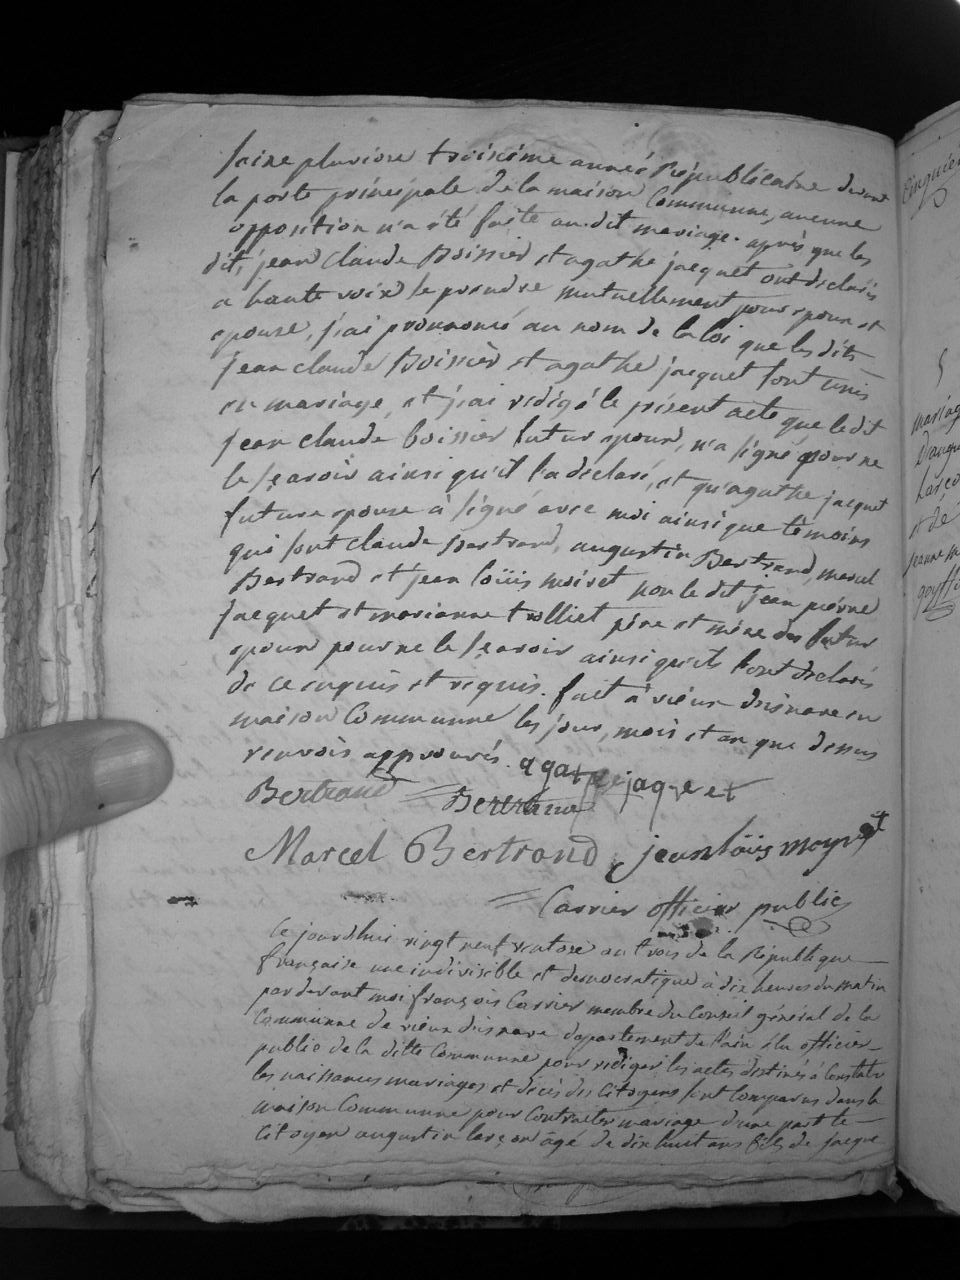 seize pluviose troisieme année Républicaine devant
la porte principale de la maison Communne, aucune
opposition n'a été faite au dit mariage. après que les
dits jean claude Boissier et agathe jacquet ont declarés
a haute voix se prendre mutuellement pour epoux et
epouse, j'ai prononcé au nom de la loi que les dits
jean claude Boissier et agathe jacquet sont unis
en mariage, et j'ai redigé le présent acte que le dit
jean claude boissier futur epoux, n'a signé pour ne
le sçavoir ainsi qu'il l'a declaré, et qu'agathe jacquet
future epouse à signé avec moi ainsi que témoins
qui sont claude Bertrand, augustin Bertrand, marcel
Bertrand et jean loüis moiret non le dit jean pierre
jacquet et marianne trolliet père et mère des futur
epoux pour ne le sçavoir ainsi qu'ils l'ont declarés
de ce enquis et requis. fait à vieux d'isnave en
maison Communne les jour, mois et an que dessus
renvois approuvés. agathe jaquet
Bertrand Bertrand
Marcel Bertrand jean loüis moyret
Carrier officier public
Ce jourdhui vingt neuf ventose an trois de la République
française une indivisible et democratique à dix heures du matin
par devant moi françois Carrier membre du Conseil général de la
Communne de vieux d'isnave departement de l'ain élu officier
public de la ditte Communne pour rédiger les actes destinés à Constater
les naissances mariages et décès des Citoyens sont comparus dans la
maison Communne pour Contracter mariage d'une part le
Citoyen augustin larçon âgé de dix huit ans fils de jacque
Cinquie
5
mariag
D'augu
Larço
et de
jeanne m
goyffo